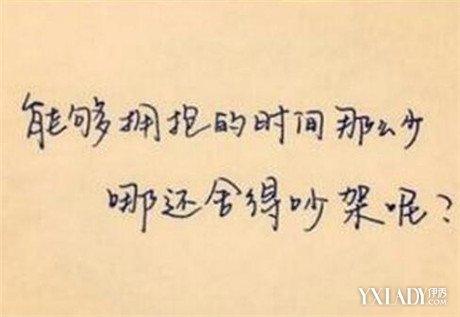 能够拥抱的时间那么少
哪还舍得吵架呢?
YXLADY伊秀
.COM